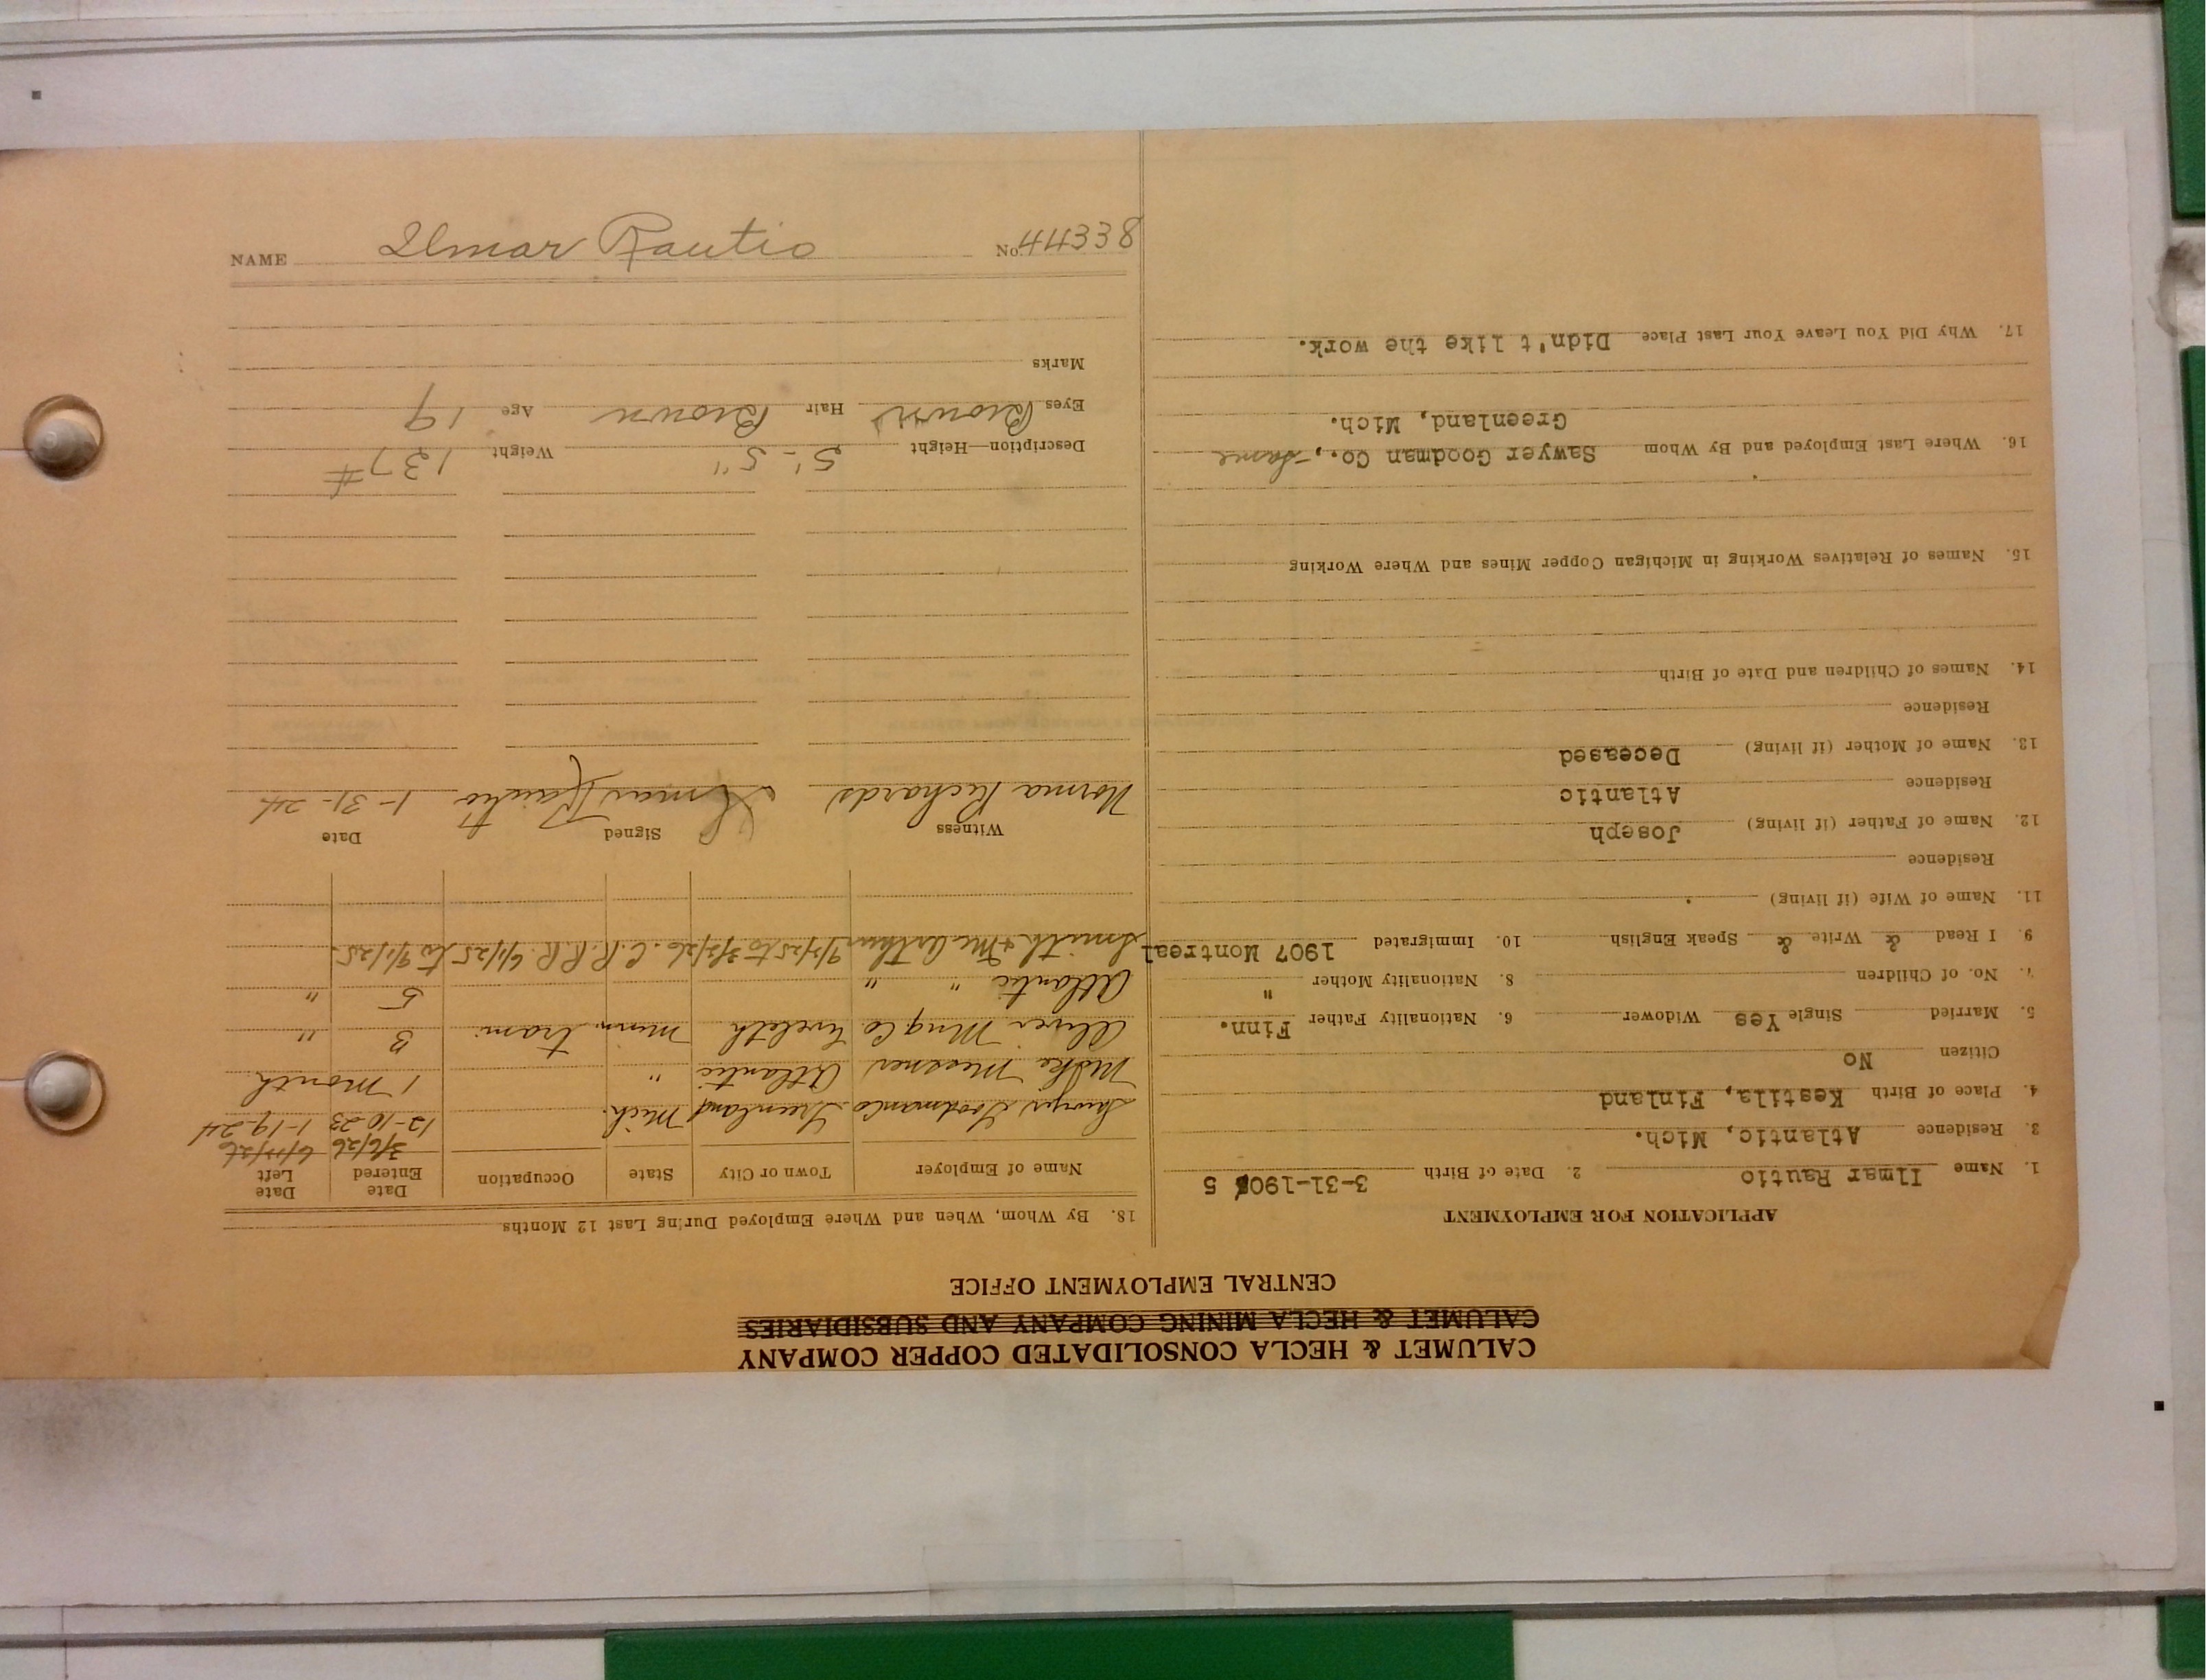 CALUMET & HECLA CONSOLIDATED COPPER COMPANY
CALUMET & HECLA MINING COMPANY AND SUBSIDIARIES
CENTRAL EMPLOYMENT OFFICE
APPLICATION FOR EMPLOYMENT
1. Name Ilmar Rautio 2. Date of Birth 3-31-190 5
3. Residence Atlantic, Mich.
4. Place of Birth Kestila, Finland
Citizen No
5. Married Single Yes Widower 6. Nationality Father Finn.
7. No. of Children 8. Nationality Mother "
9. I Read & Write & Speak English 10. Immigrated 1907 Montreal
11. Name of Wife (if living)
Residence
12. Name of Father (if living) Joseph
Residence Atlantic
13. Name of Mother (if living) Deceased
Residence
14. Names of Children and Date of Birth
15. Names of Relatives Working in Michigan Copper Mines and Where Working
16. Where Last Employed and By Whom Sawyer Goodman Co., - same
Greenland, Mich.
17. Why Did You Leave Your Last Place Didn't like the work.
18. By Whom, When and Where Employed During Last 12 Months
Name of Employer Town or City State Occupation Date Entered Date Left
3/6/26
Sawyer Goodman Co Greenland Mich. 12-10-23 1-19-24
Mike Messner Atlantic " 1 month
Oliver Mng Co Eveleth Minn. tram 3 "
Atlantic " " 5 "
Smith & McArthur 9/2/25 to 3/2/26. C.R.R.R. 6/1/25 to 9/1/25.
Witness Signed Date
Norma Richards Ilmar Rautio 1-31-24
Description—Height 5'-5" Weight 137#
Eyes Brown Hair Brown Age 19
Marks
NAME Ilmar Rautio No. 44338